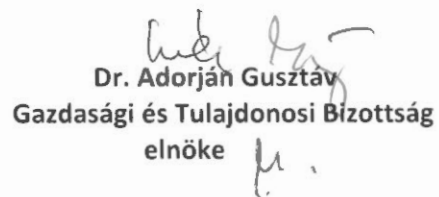 Dr. Adorján Gusztáv
Gazdasági és Tulajdonosi Bizottság
elnöke